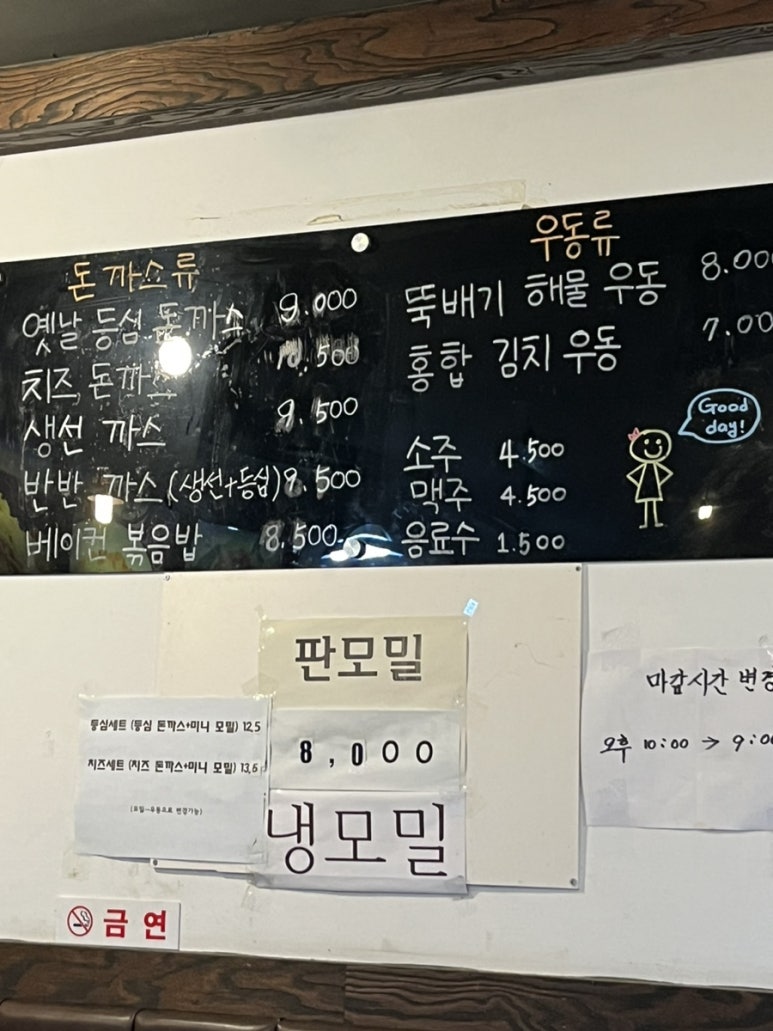 돈까스류
옛날 등심 돈까스 9.000
치즈 돈까스 10.500
생선 까스 9.500
반반 까스 (생선+등심) 9.500
베이컨 볶음밥 8.500
우동류
뚝배기 해물 우동 8.000
홍합 김치 우동 7.00
소주 4.500
맥주 4.500
음료수 1.500
Good
day!
판모밀
8,000
냉모밀
등심세트 (등심 돈까스+미니 모밀) 12,5
치즈세트 (치즈 돈까스+미니 모밀) 13,5
(모밀→우동으로 변경가능)
마감시간 변경
오후 10:00 → 9:00
금연